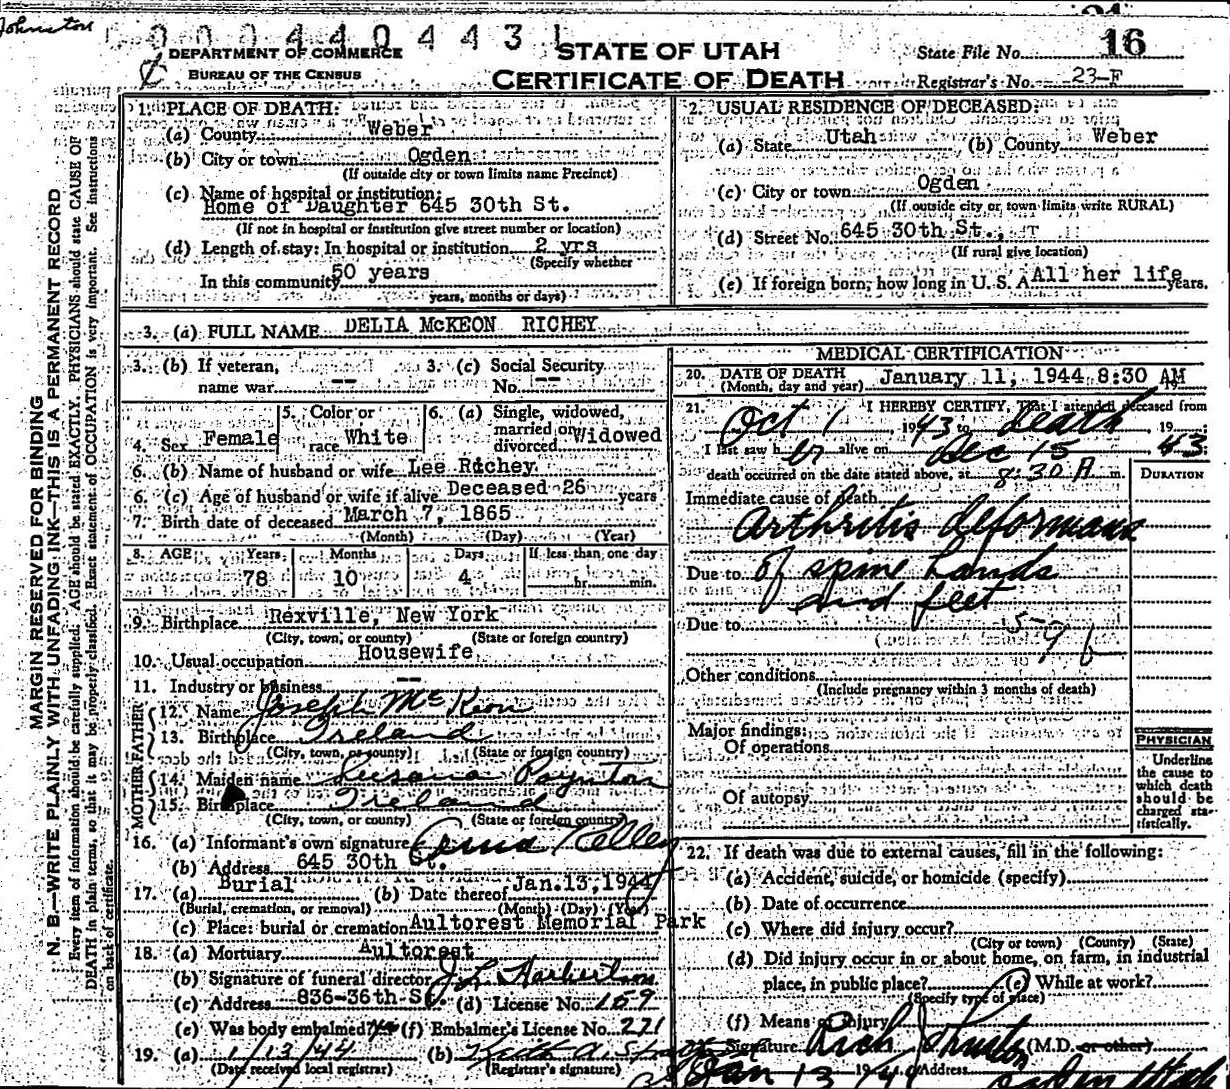 Johnston
0 0 0 4 4 0 4 4 3 1
DEPARTMENT OF COMMERCE
BUREAU OF THE CENSUS
STATE OF UTAH
CERTIFICATE OF DEATH
State File No. 16
Registrar's No. 23-F
MARGIN RESERVED FOR BINDING
N. B.—WRITE PLAINLY WITH UNFADING INK—THIS IS A PERMANENT RECORD
Every item of information should be carefully supplied. AGE should be stated EXACTLY. PHYSICIANS should state CAUSE OF
DEATH in plain terms, so that it may be properly classified. Exact statement of OCCUPATION is very important. See instructions
on back of certificate.
1. PLACE OF DEATH:
(a) County Weber
(b) City or town Ogden
(If outside city or town limits name Precinct)
(c) Name of hospital or institution:
Home of Daughter 645 30th St.
(If not in hospital or institution give street number or location)
(d) Length of stay: In hospital or institution 2 yrs
(Specify whether
In this community 50 years
years, months or days)
2. USUAL RESIDENCE OF DECEASED:
(a) State Utah (b) County Weber
(c) City or town Ogden
(If outside city or town limits write RURAL)
(d) Street No. 645 30th St.,
(If rural give location)
(e) If foreign born, how long in U. S. A. All her life years.
3. (a) FULL NAME DELIA McKEON RICHEY
3. (b) If veteran, name war -- 3. (c) Social Security No. --
4. Sex Female 5. Color or race White 6. (a) Single, widowed, married or divorced Widowed
6. (b) Name of husband or wife Lee Richey
6. (c) Age of husband or wife if alive Deceased 26 years
7. Birth date of deceased March 7, 1865
(Month) (Day) (Year)
8. AGE Years Months Days If less than one day
78 10 4 hr. min.
9. Birthplace Rexville, New York
(City, town, or county) (State or foreign country)
10. Usual occupation Housewife
11. Industry or business --
FATHER
12. Name Joseph McKeon
13. Birthplace Ireland
(City, town, or county) (State or foreign country)
MOTHER
14. Maiden name Susana Poynton
15. Birthplace Ireland
(City, town, or county) (State or foreign country)
16. (a) Informant's own signature Kelley
(b) Address 645 30th St.
17. (a) Burial (b) Date thereof Jan.13,1944
(Burial, cremation, or removal) (Month) (Day) (Year)
(c) Place: burial or cremation Aultorest Memorial Park
18. (a) Mortuary Aultorest
(b) Signature of funeral director
(c) Address 836-36th St. (d) License No. 169
(e) Was body embalmed? (f) Embalmer's License No. 271
19. (a) 1/13/44 (b) Keith A.
(Date received local registrar) (Registrar's signature)
MEDICAL CERTIFICATION
20. DATE OF DEATH
(Month, day and year) January 11, 1944 8:30 AM
21. I HEREBY CERTIFY, That I attended deceased from
Oct 1 1943 to death, 19
I last saw her alive on Dec 15 43
death occurred on the date stated above, at 8:30 A m.
DURATION
Immediate cause of death
Arthritis deformans
Due to of spine hands
and feet
Due to
Other conditions
(Include pregnancy within 3 months of death)
Major findings:
Of operations
Of autopsy
PHYSICIAN
Underline
the cause to
which death
should be
charged sta-
tistically.
22. If death was due to external causes, fill in the following:
(a) Accident, suicide, or homicide (specify)
(b) Date of occurrence
(c) Where did injury occur?
(City or town) (County) (State)
(d) Did injury occur in or about home, on farm, in industrial
place, in public place? (e) While at work?
(Specify type of place)
(f) Means of injury
Signature Rich Johnston (M.D. or other)
Jan 13 194 Address